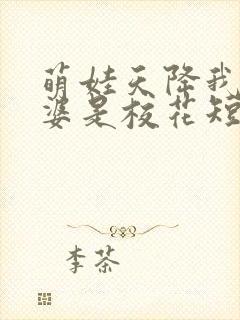 萌娃天降我
婆是校花短
李茶